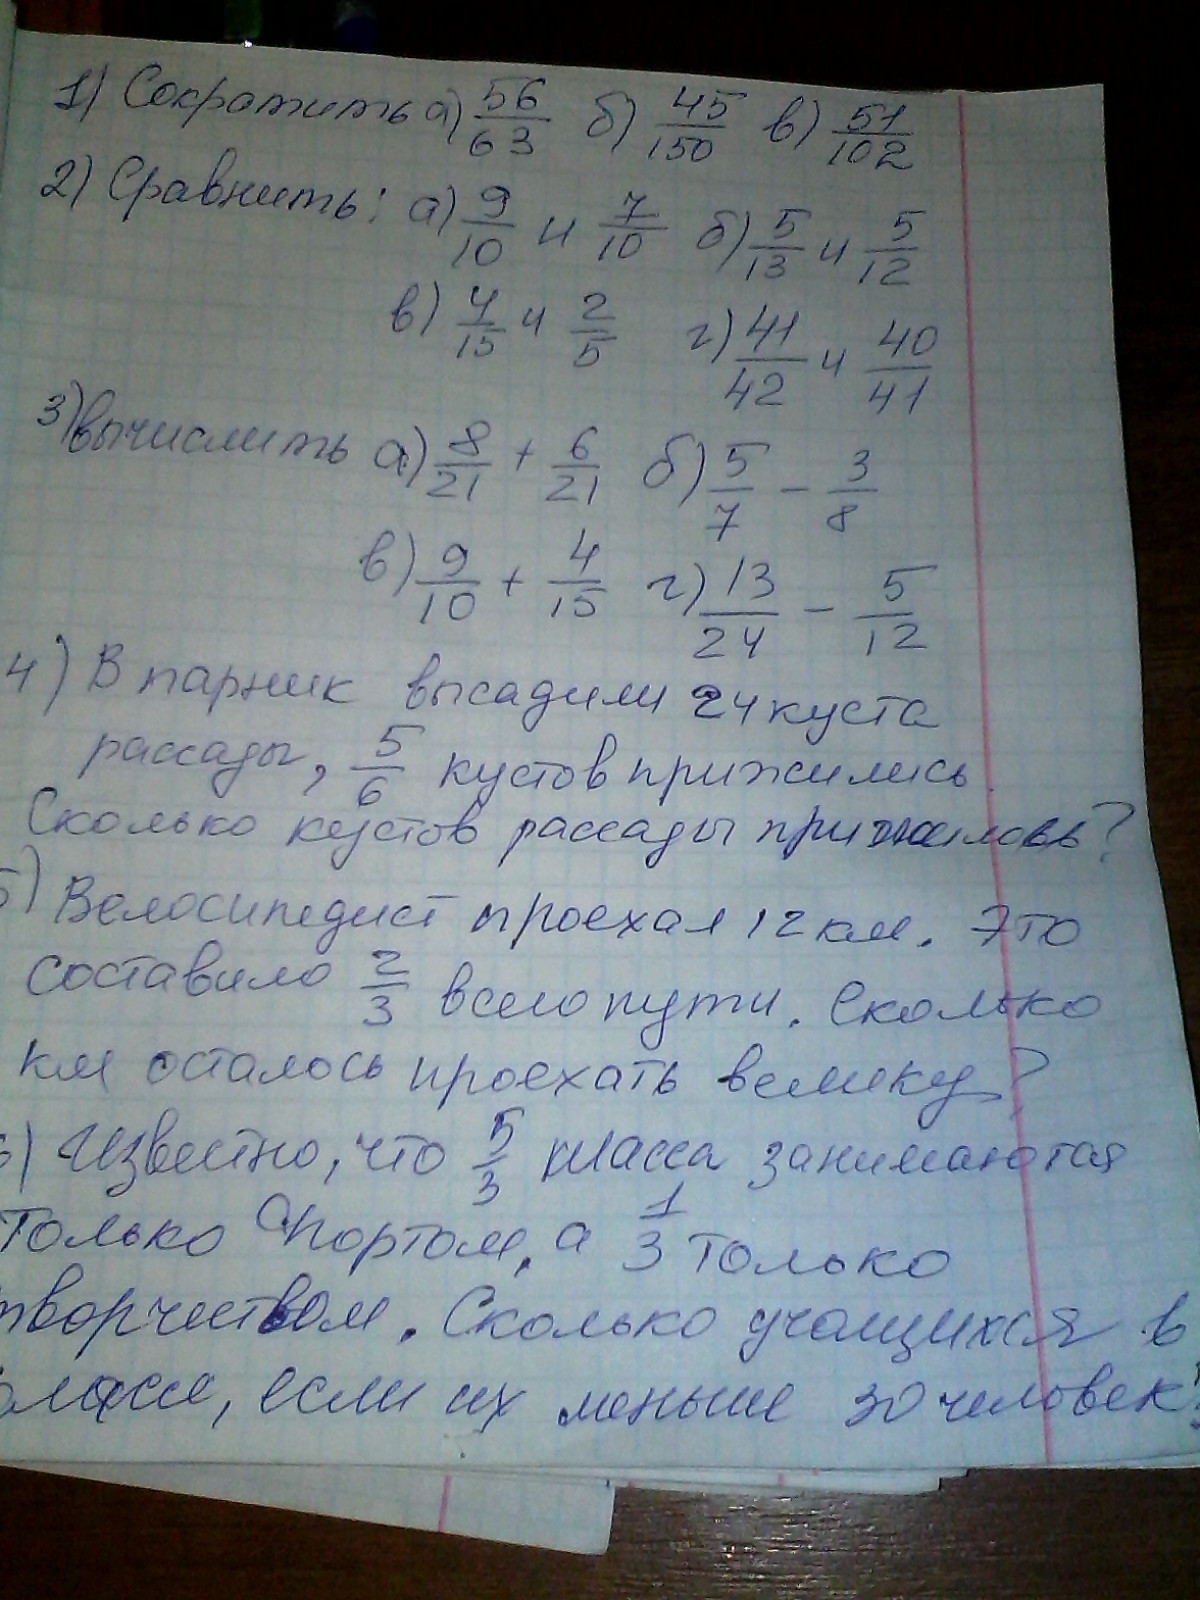 1) Сократить а) 56/63 б) 45/150 в) 51/102
2) Сравнить: а) 9/10 и 7/10 б) 5/13 и 5/12
в) 4/15 и 2/5 г) 41/42 и 40/41
3) вычислить а) 8/21 + 6/21 б) 5/7 - 3/8
в) 9/10 + 4/15 г) 13/24 - 5/12
4) В парник высадили 24 куста
рассады, 5/6 кустов прижились.
Сколько кустов рассады прижилось?
5) Велосипедист проехал 12 км. Это
составило 2/3 всего пути. Сколько
км осталось проехать велику?
6) Известно, что 5/3 класса занимаются
только спортом, а 1/3 только
творчеством. Сколько учащихся в
классе, если их меньше 30 человек?